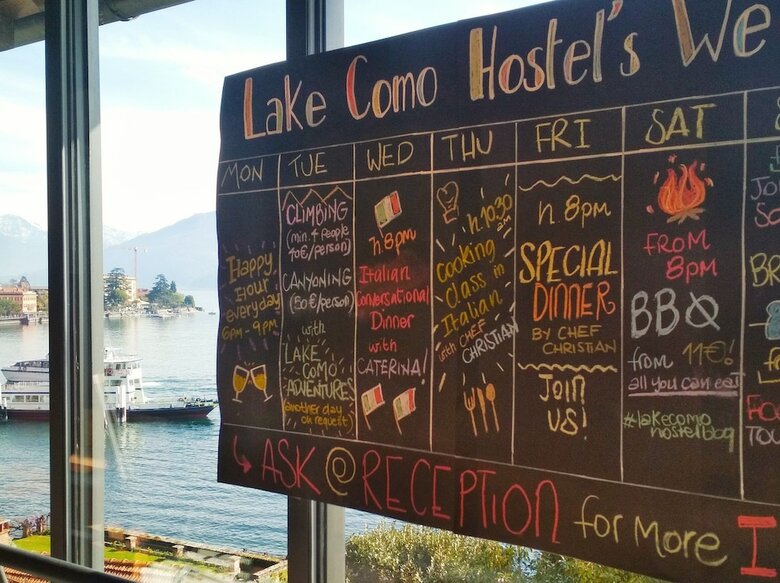 Lake Como Hostel's We
MON
Happy
Hour
everyday
6pm - 9pm
TUE
CLIMBING
(min. 4 people
40€/person)
CANYONING
(50€/person)
with
LAKE
COMO
ADVENTURES
(another day
on request)
WED
h 8pm
Italian
Conversational
Dinner
with
CATERINA!
THU
h 10.30
am
Cooking
Class in
Italian
with CHEF
CHRISTIAN
FRI
h. 8pm
SPECIAL
DINNER
BY CHEF
CHRISTIAN
JOIN
US!
SAT
FROM
8PM
BBQ
from 11€!
all you can eat
#lakecomo
hostelbbq
→ ASK @ RECEPTION for more I